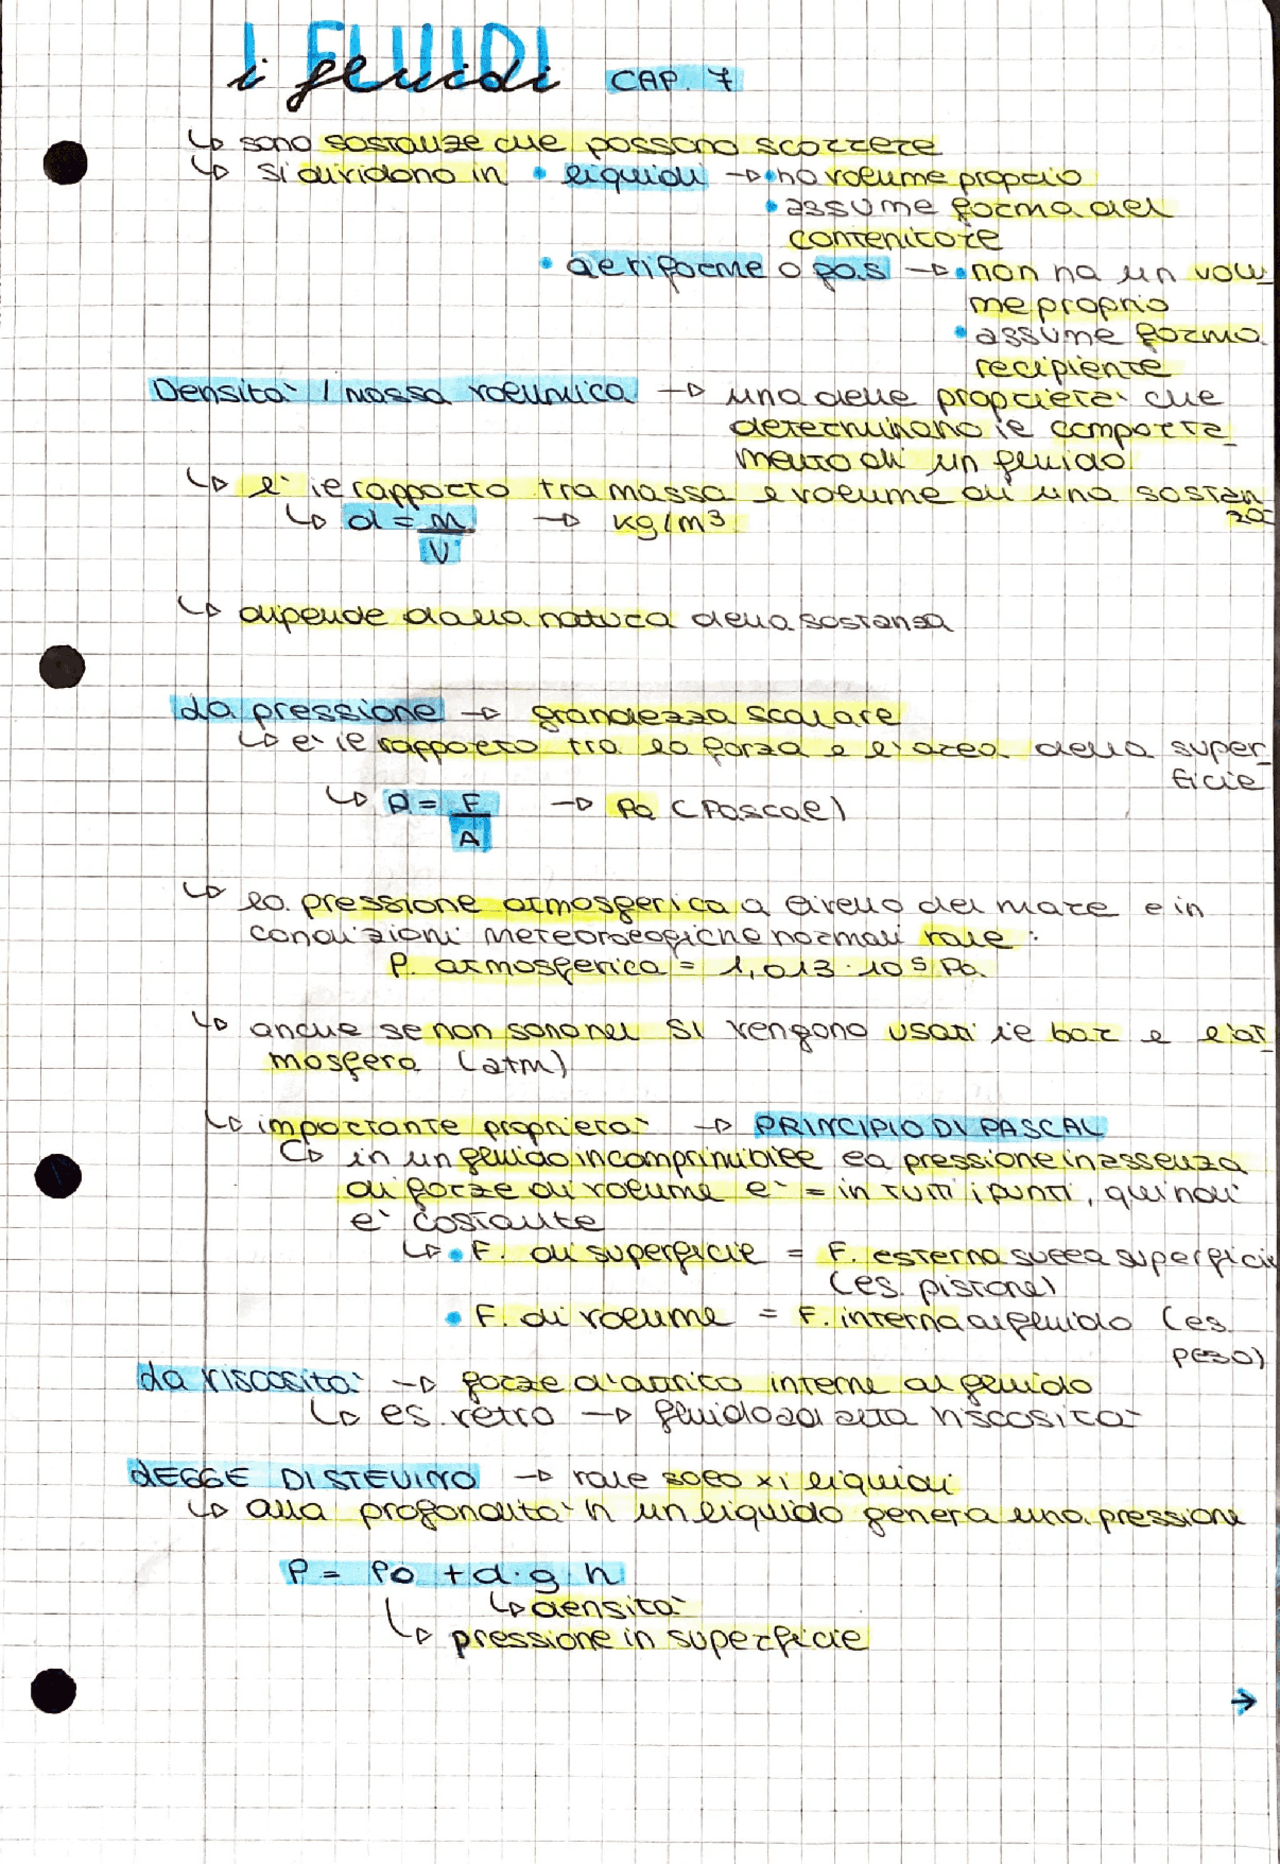 I FLUIDI
i fluidi CAP. 7
↳ sono sostanze che possono scorrere
↳ si dividono in • liquidi → • ha volume proprio
• assume forma del
contenitore
• aeriforme o gas → • non ha un volu
me proprio
• assume forma
recipiente
Densità / massa volumica → una delle proprietà che
determinano il comporta
mento di un fluido
↳ è il rapporto tra massa e volume di una sostan
za
↳ d = m/V → kg/m³
↳ dipende dalla natura della sostanza
La pressione → grandezza scalare
↳ è il rapporto tra la forza e l'area della super
ficie
↳ p = F/A → Pa (Pascal)
↳ la pressione atmosferica a livello del mare e in
condizioni meteorologiche normali vale:
P. atmosferica = 1,013 · 10⁵ Pa
↳ anche se non sono nel SI vengono usati il bar e l'at
mosfera (atm)
↳ importante proprietà → PRINCIPIO DI PASCAL
↳ in un fluido incomprimibile la pressione in assenza
di forze di volume è = in tutti i punti, quindi
è costante
↳ • F. di superficie = F. esterna sulla superficie
(es. pistone)
• F. di volume = F. interna al fluido (es.
peso)
La viscosità → forze d'attrito interne al fluido
↳ es. vetro → fluido ad alta viscosità
LEGGE DI STEVINO → vale solo x i liquidi
↳ alla profondità h un liquido genera una pressione
P = P0 + d · g · h
↳ densità
↳ pressione in superficie
→